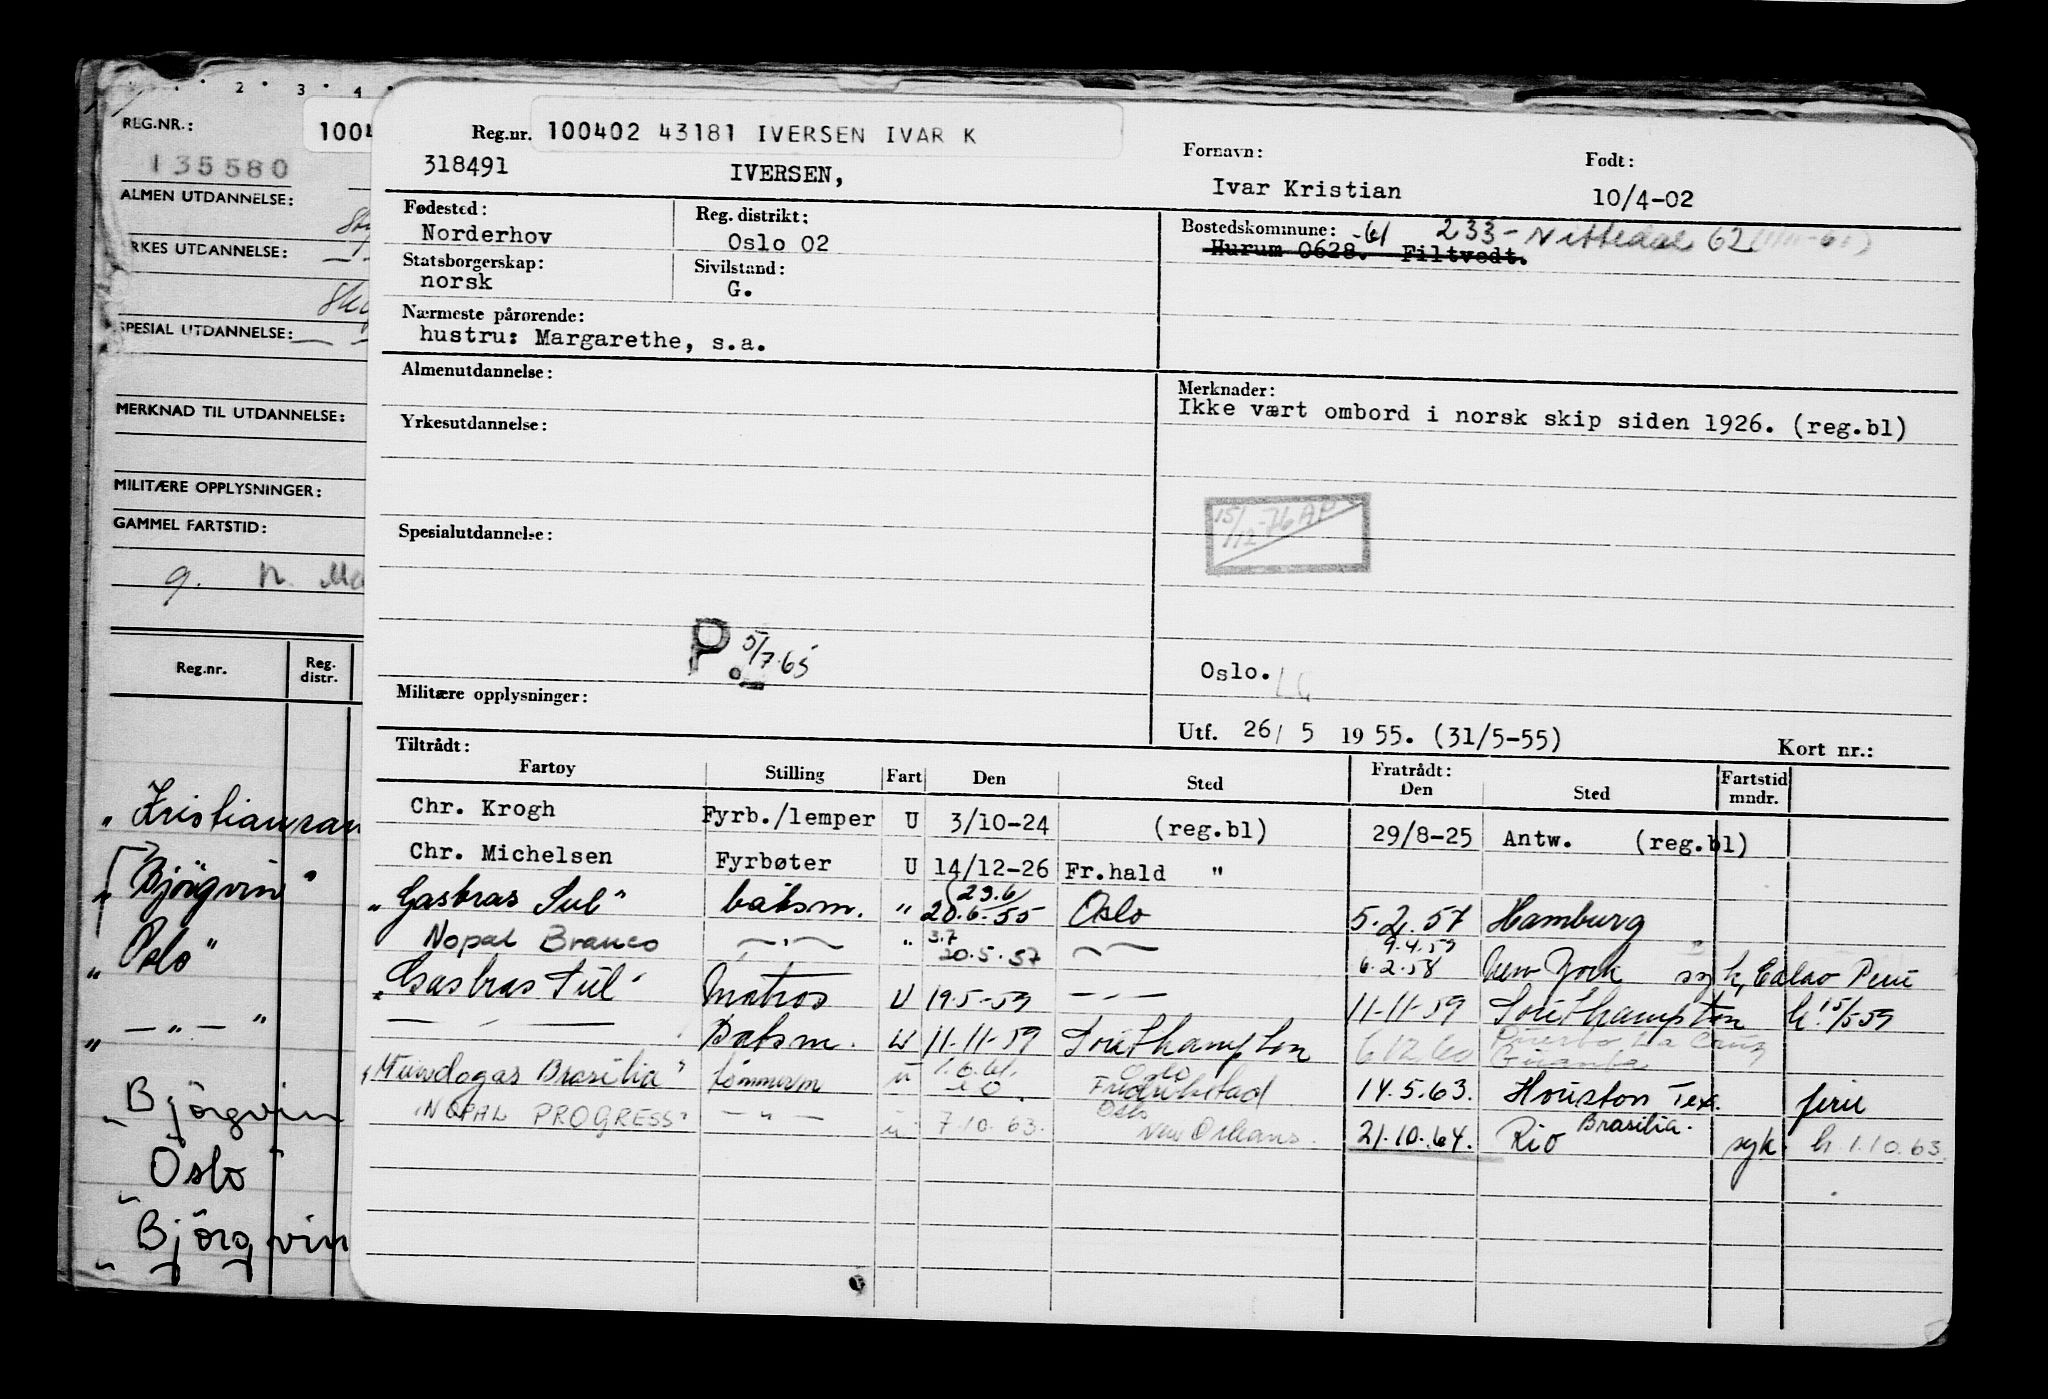 2 3 4
REG.NR.:
135580
ALMEN UTDANNELSE:
RKES UTDANNELSE:
SPESIAL UTDANNELSE:
MERKNAD TIL UTDANNELSE:
MILITÆRE OPPLYSNINGER:
GAMMEL FARTSTID:
Reg.nr. Reg. distr.
" Kristiansan
" Bjørgvin "
" Oslo "
" — " — "
" Bjørgvin
Oslo "
" Bjørgvin
1004
Reg.nr. 100402 43181 IVERSEN IVAR K
318491 IVERSEN,
Fornavn: Født:
Ivar Kristian 10/4-02
Fødested: Reg. distrikt:
Norderhov Oslo 02
Bostedskommune: -61 233- Nittedal 62
Hurum 0628. Filtvedt.
Statsborgerskap: Sivilstand:
norsk G.
Nærmeste pårørende:
hustru: Margarethe, s.a.
Almenutdannelse:
Merknader:
Ikke vært ombord i norsk skip siden 1926. (reg.bl)
Yrkesutdannelse:
15/12-76 AP
Spesialutdannelse:
P. 5/7.65
Oslo.
Militære opplysninger:
Utf. 26/ 5 1955. (31/5-55) Kort nr.:
Tiltrådt: Fratrådt:
Fartøy Stilling Fart Den Sted Den Sted Fartstid mndr.
Chr. Krogh Fyrb./lemper U 3/10-24 (reg.bl) 29/8-25 Antw. (reg.bl)
Chr. Michelsen Fyrbøter U 14/12-26 Fr.hald "
" Gasbras Sul " båtsm. " 29.6 20.6.55 Oslo 5.2.57 Hamburg
Nopal Branco — " — " 3.7 20.5.57 — " — 9.4.59 6.2.58 New York syk, Callao Peru
" Gasbras Sul " Matros U 19.5-59 — " — 11-11-59 Southampton h. 15/5 59
— " — Båtsm. U 11-11-59 Southampton 6 12 60 Puerto La Cruz
" Mundogas Brasilia " tømmerm u 1.6.61. Oslo Fredrikstad 14.5.63. Houston Tex. ferie
" NOPAL PROGRESS " — " — u 7.10.63. Oslo New Orleans. 21.10.64. Rio Brasilia. syk. h.1.10.63.